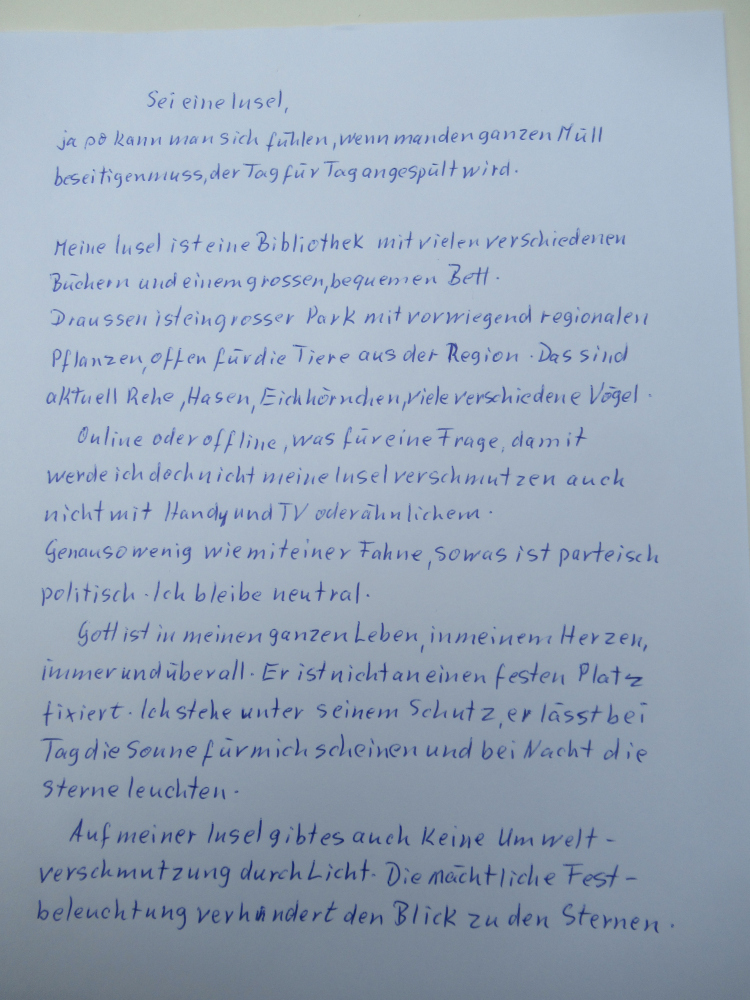 Sei eine Insel,
ja so kann man sich fühlen, wenn man den ganzen Müll
beseitigen muss, der Tag für Tag angespült wird.
Meine Insel ist eine Bibliothek mit vielen verschiedenen
Büchern und einem grossen, bequemen Bett.
Draussen ist ein grosser Park mit vorwiegend regionalen
Pflanzen, offen für die Tiere aus der Region. Das sind
aktuell Rehe, Hasen, Eichhörnchen, viele verschiedene Vögel.
Online oder offline, was für eine Frage, damit
werde ich doch nicht meine Insel verschmutzen auch
nicht mit Handy und TV oder ähnlichem.
Genauso wenig wie mit einer Fahne, sowas ist parteisch
politisch. Ich bleibe neutral.
Gott ist in meinen ganzen Leben, in meinem Herzen,
immer und überall. Er ist nicht an einen festen Platz
fixiert. Ich stehe unter seinem Schutz, er lässt bei
Tag die Sonne für mich scheinen und bei Nacht die
Sterne leuchten.
Auf meiner Insel gibt es auch keine Umwelt-
verschmutzung durch Licht. Die nächtliche Fest-
beleuchtung verhindert den Blick zu den Sternen.